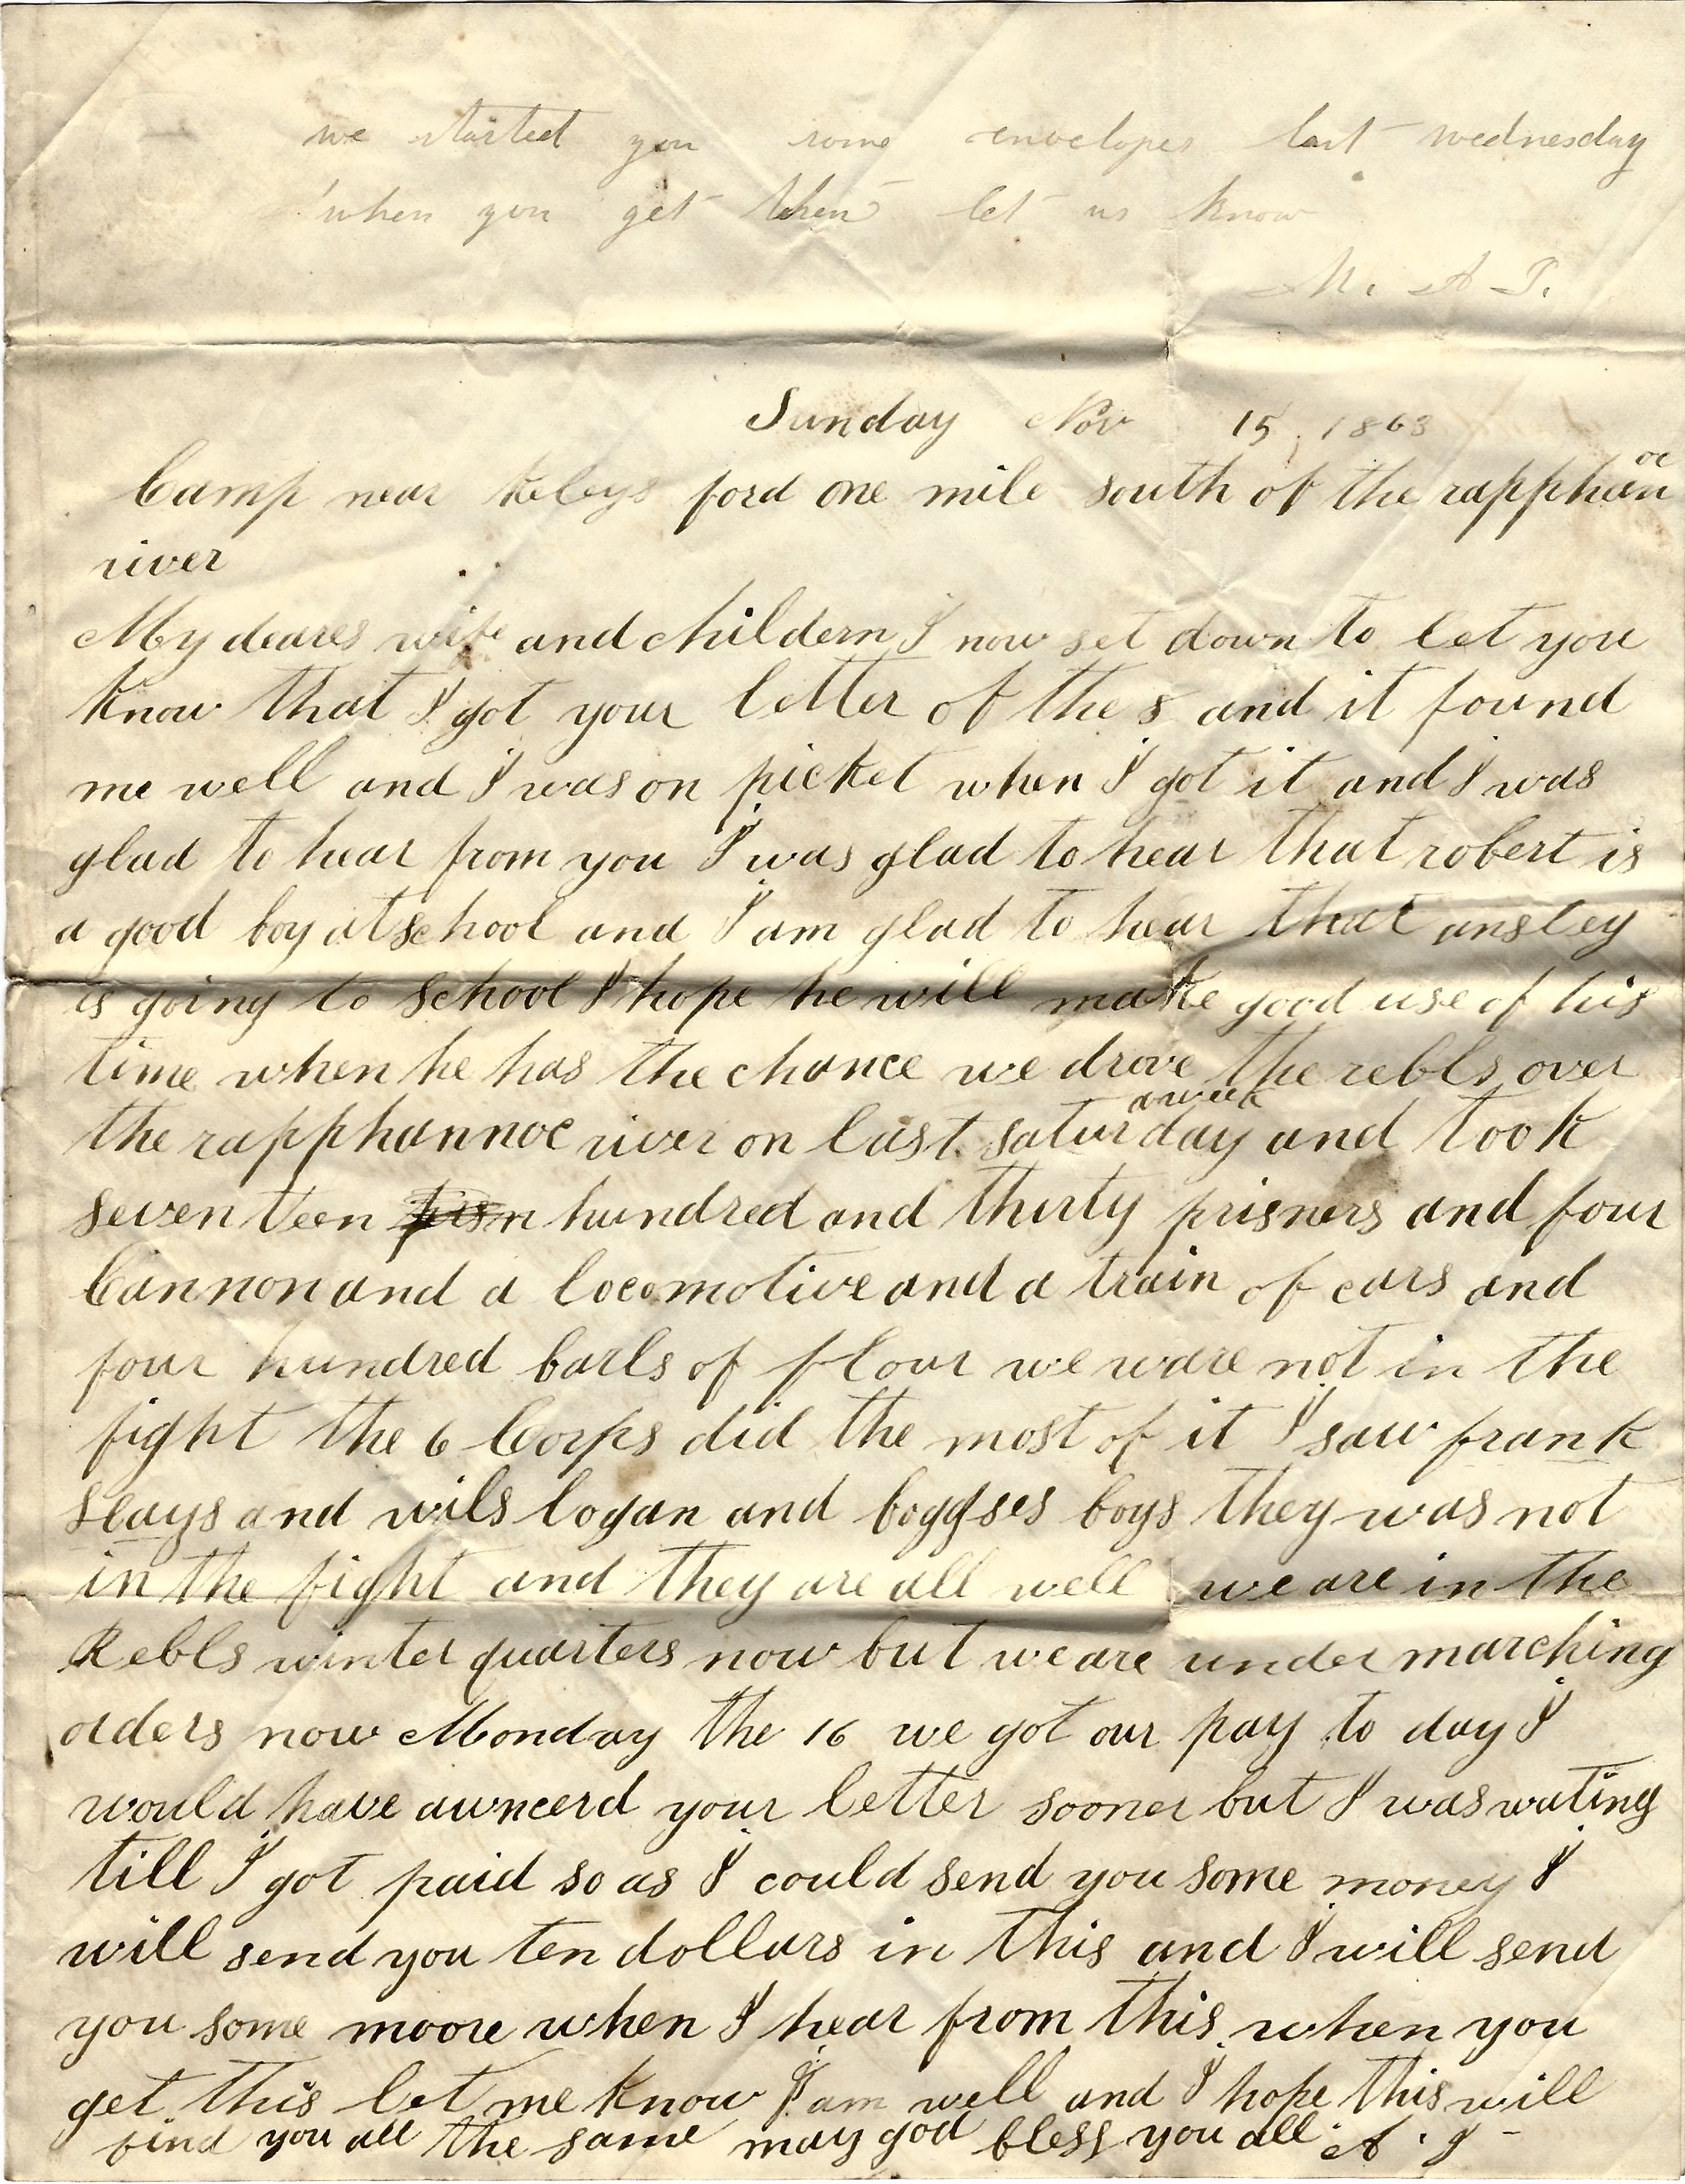 we started you some envelopes last wednesday
when you get them let us know
M. A
Sunday Nov 15 1863
Camp near Keleys ford one mile south of the rapphan oc
river
My deares wife and childern I now set down to let you
know that I got your letter of the 8 and it found
me well and I was on picket when I got it and I was
glad to hear from you I was glad to hear that robert is
a good boy at school and I am glad to hear that ansley
is going to school I hope he will make good use of his
time when he has the chance we drove the rebls over
a week
the rapphannoc river on last saturday and took
seventeen hundred and thirty prisners and four
Cannon and a locomotive and a train of cars and
four hundred barls of flour we ware not in the
fight the 6 Corps did the most of it I saw frank
Slays and wils logan and boggses boys they was not
in the fight and they are all well we are in the
Rebls winter quarters now but we are under marching
orders now Monday the 16 we got our pay to day I
would have awncerd your letter sooner but I was wating
till I got paid so as I could send you some money I
will send you ten dollars in this and I will send
you some moore when I hear from this when you
get this let me know I am well and I hope this will
find you all the same may god bless you all A. J